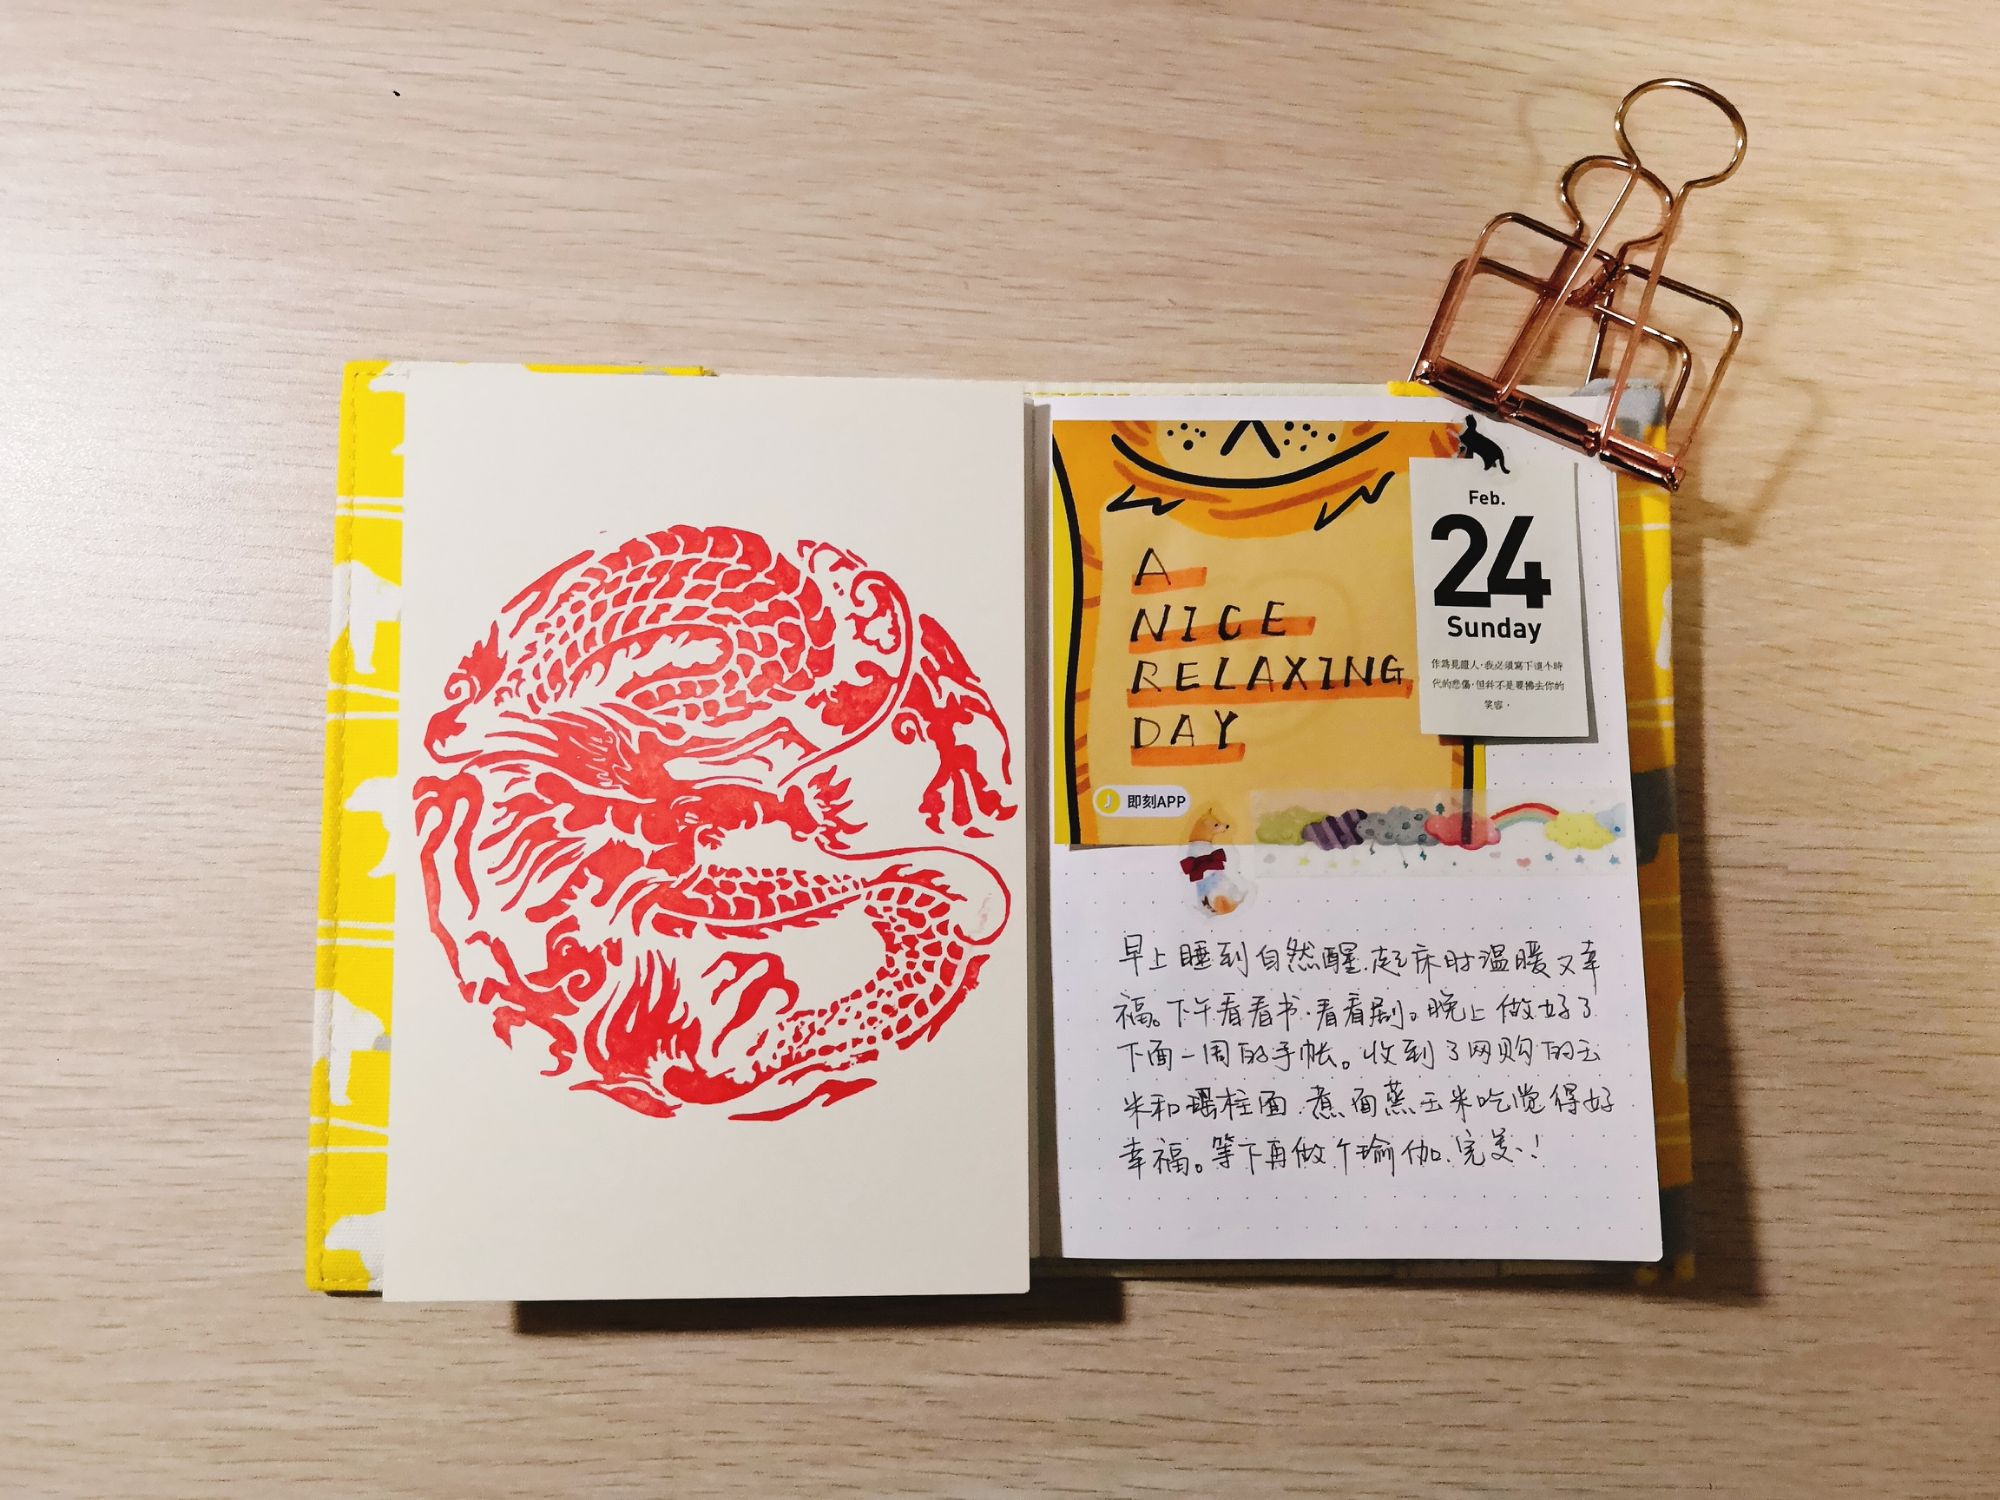 A
NICE
RELAXING
DAY
即刻APP
Feb.
24
Sunday
作為見證人,我必須寫下這个時
代的悲傷,但並不是要拂去你的
笑容。
早上睡到自然醒,起床时温暖又幸
福。下午看看书,看看剧。晚上做好了
下面一周的手帐。收到了网购的玉
米和瑶柱面,煮面蒸玉米吃觉得好
幸福。等下再做个瑜伽,完美!